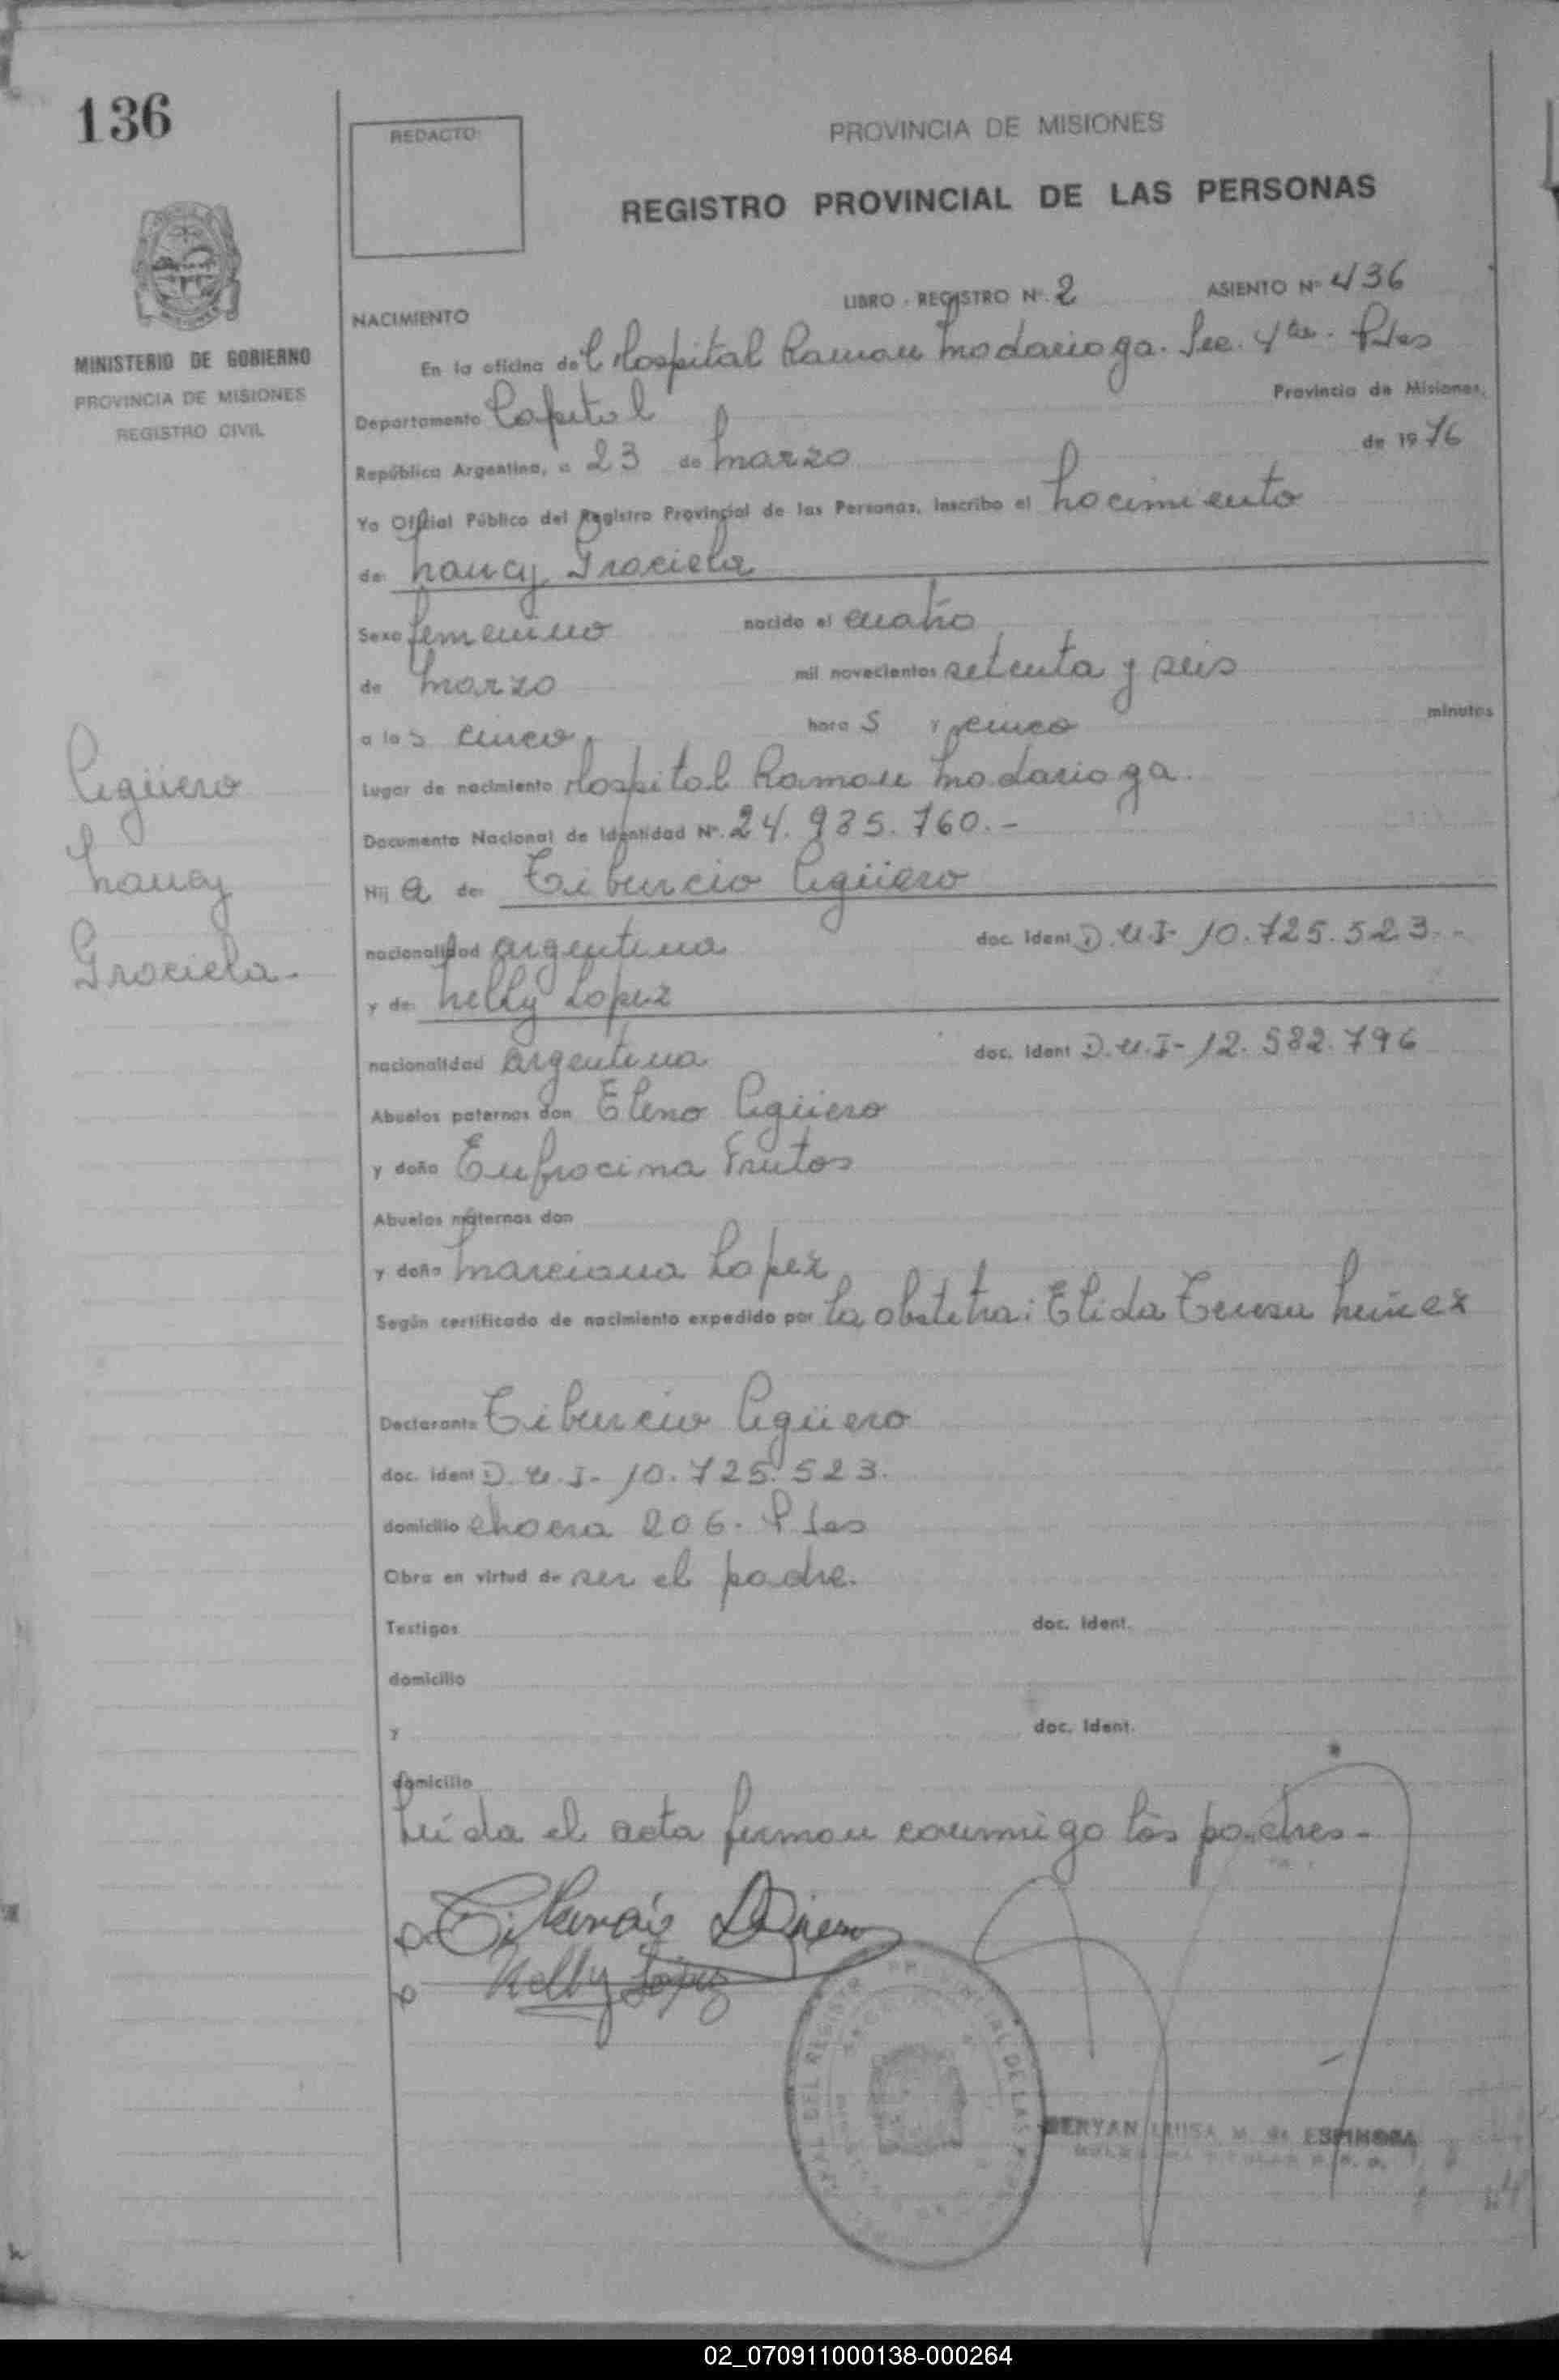 136
REDACTO:
PROVINCIA DE MISIONES
REGISTRO PROVINCIAL DE LAS PERSONAS
MINISTERIO DE GOBIERNO
PROVINCIA DE MISIONES
REGISTRO CIVIL
LIBRO - REGISTRO Nº. 2 ASIENTO Nº 436
NACIMIENTO
En la oficina del Hospital Ramon Madariaga. Sec. 4ta. Pdas
Departamento Capital Provincia de Misiones,
República Argentina, a 23 de Marzo de 1976
Yo Oficial Público del Registro Provincial de las Personas, inscribo el Nacimiento
de: Nancy Graciela
Sexo femenino nacido el cuatro
de Marzo mil novecientos setenta y seis
a las cinco hora S y cinco minutos
Lugar de nacimiento Hospital Ramon Madariaga.
Documento Nacional de Identidad Nº. 24.985.760.-
Agüero
Nancy
Graciela.-
Hij a de: Tiburcio Agüero
nacionalidad argentina doc. Ident D.N.I- 10.725.523.-
y de: Nelly Lopez
nacionalidad argentina doc. Ident D.N.I- 12.582.796
Abuelos paternos don Eleno Agüero
y doña Eufrocina Frutos
Abuelos maternos don
y doña Marciana Lopez
Según certificado de nacimiento expedido por la obstetra: Elida Teresa Nuñez
Declarante Tiburcio Agüero
doc. ident D.N.I- 10.725.523.
domicilio 206. Pdas
Obra en virtud de ser el padre.
Testigos doc. Ident.
domicilio
y doc. Ident.
domicilio
Leída el acta firman conmigo los padres.-
Nelly Lopez
LUISA M. de ESPINOSA
02_070911000138-000264